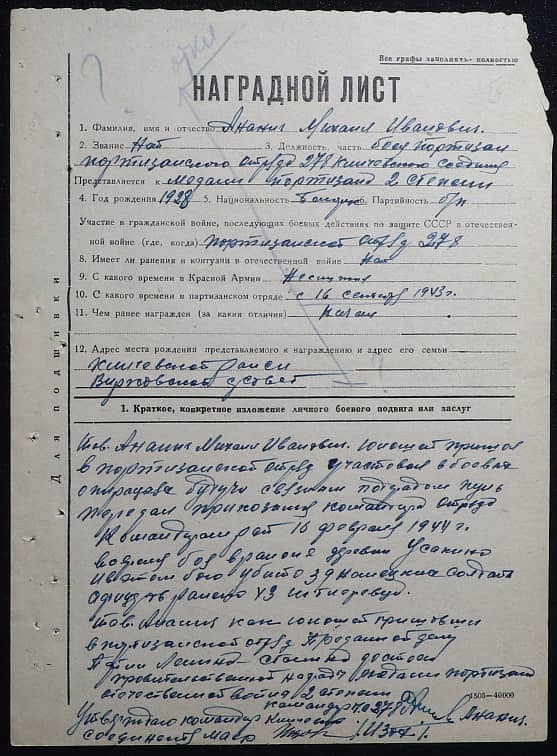 Все графы заполнять полностью
НАГРАДНОЙ ЛИСТ
1. Фамилия, имя и отчество Ананич Михаил Иванович
2. Звание Нат 3. Должность, часть боец партизан
портизанского отряда 278 Кличевского соединя
Представляется к медали портизана 2 степени
4. Год рождения 1928 5. Национальность 6. Партийность б/п
Участие в гражданской войне, последующих боевых действиях по защите СССР в отечествен-
ной войне (где, когда) портизанской отряд 278
8. Имеет ли ранения и контузии в отечественной войне Нат
9. С какого времени в Красной Армии
10. С какого времени в партизанском отряде с 16 сентября 1943 г.
11. Чем ранее награжден (за какия отличия)
12. Адрес места рождения представляемого к награждению и адрес его семьи
Кличевской
Для подшивки
1. Краткое, конкретное изложение личного боевого подвига или заслуг
тов. Ананич Михаил Иванович юношей пришол
в портизанской отряд участовал в боевых
будучи связным под градом пуль
передал приказания командира отряда
командирам рот 16 февраля 1944 г.
во время боя в районе деревни Усакино
бою убито 39 немецких солдат
ранено 43
тов. Ананич как юношей пришевши
в портизанской отряд преданной делу
партии Ленина - Сталина достоен
правительственной награды медали портизана
отечественной войны 2 степени
командир п.о 278 Ананич
1505-40000
Утверждаю командир Кличев
соединения майор /Изох/